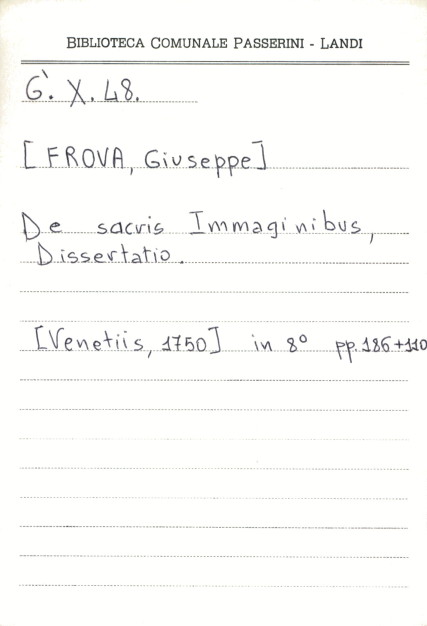 BIBLIOTECA COMUNALE PASSERINI - LANDI
G̀. X. 48.
[FROVA, Giuseppe]
De sacris Immaginibus,
Dissertatio.
[Venetiis, 1750] in 8° pp. 186+110